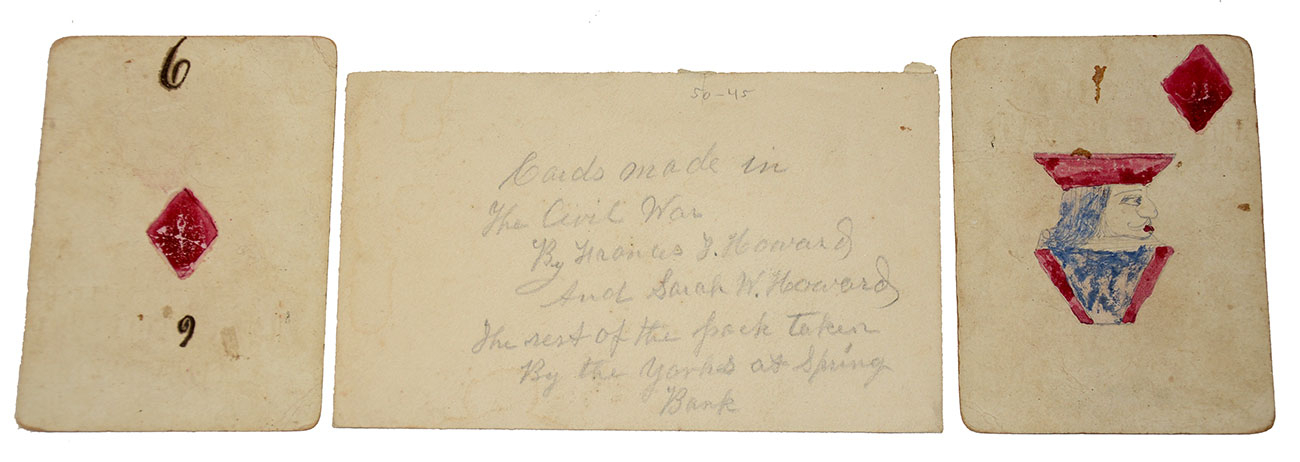 6
6
50-45
Cards made in
The Civil War
By Frances T. Howard
And Sarah W. Howard
The rest of the pack taken
By the Yanks at Spring
Bank